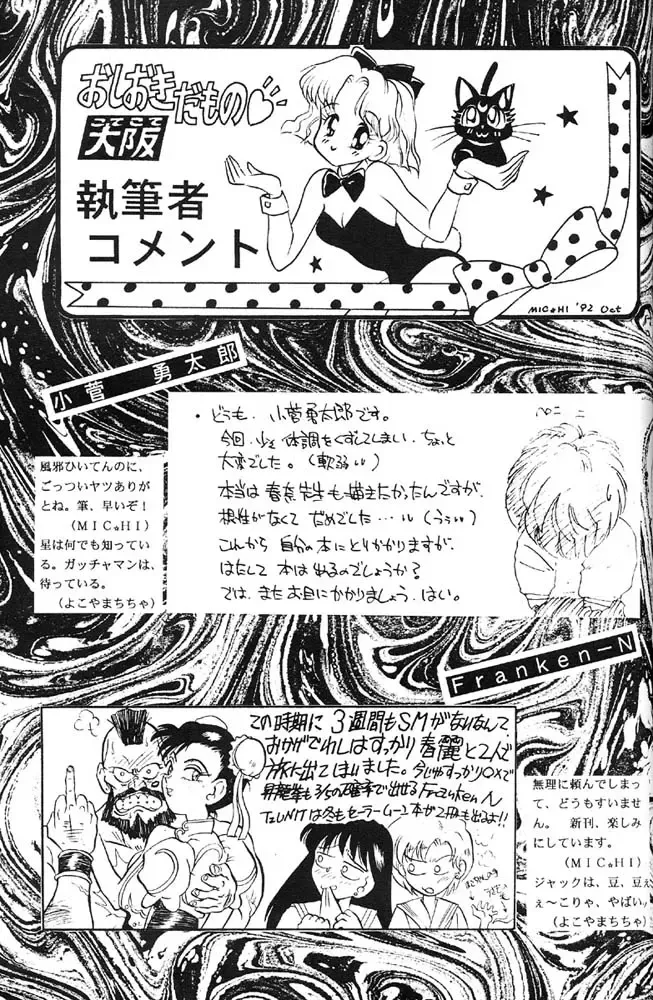 おしおきだもの♡
こてこて
大阪
執筆者
コメント
MIC☆HI '92 Oct
小菅 勇太郎
・どうも、小菅勇太郎です。
今回、少々体調をくずしてしまい、ちょっと
大変でした。(軟弱!!)
本当は春菜先生も描きたかったんですが、
根性がなくてだめでした…!!(うぅ!!)
これから自分の本にとりかかりますが、
はたして本は出るのでしょうか?
では、またお目にかかりましょう、はい。
ペコ
風邪ひいてんのに、
ごっついヤツありが
とね。筆、早いぞ!
(MIC☆HI)
星は何でも知ってい
る。ガッチャマンは、
待っている。
(よこやまちちゃ)
Franken-N
この時期に3週間もSMがないなんて
おかげでわしはすっかり春麗と2人で
旅に出てしまいました。今じゃすっかり○×で
昇龍拳も3/5の確率で出せるFranken N
T2UNITは冬もセーラームーン本が2冊も出るよ!!
無理に頼んでしまっ
て、どうもすいませ
ん。 新刊、楽しみ
にしています。
(MIC☆HI)
ジャックは、豆、豆ぇ
ぇ〜こりゃ、やばい。
(よこやまちちゃ)